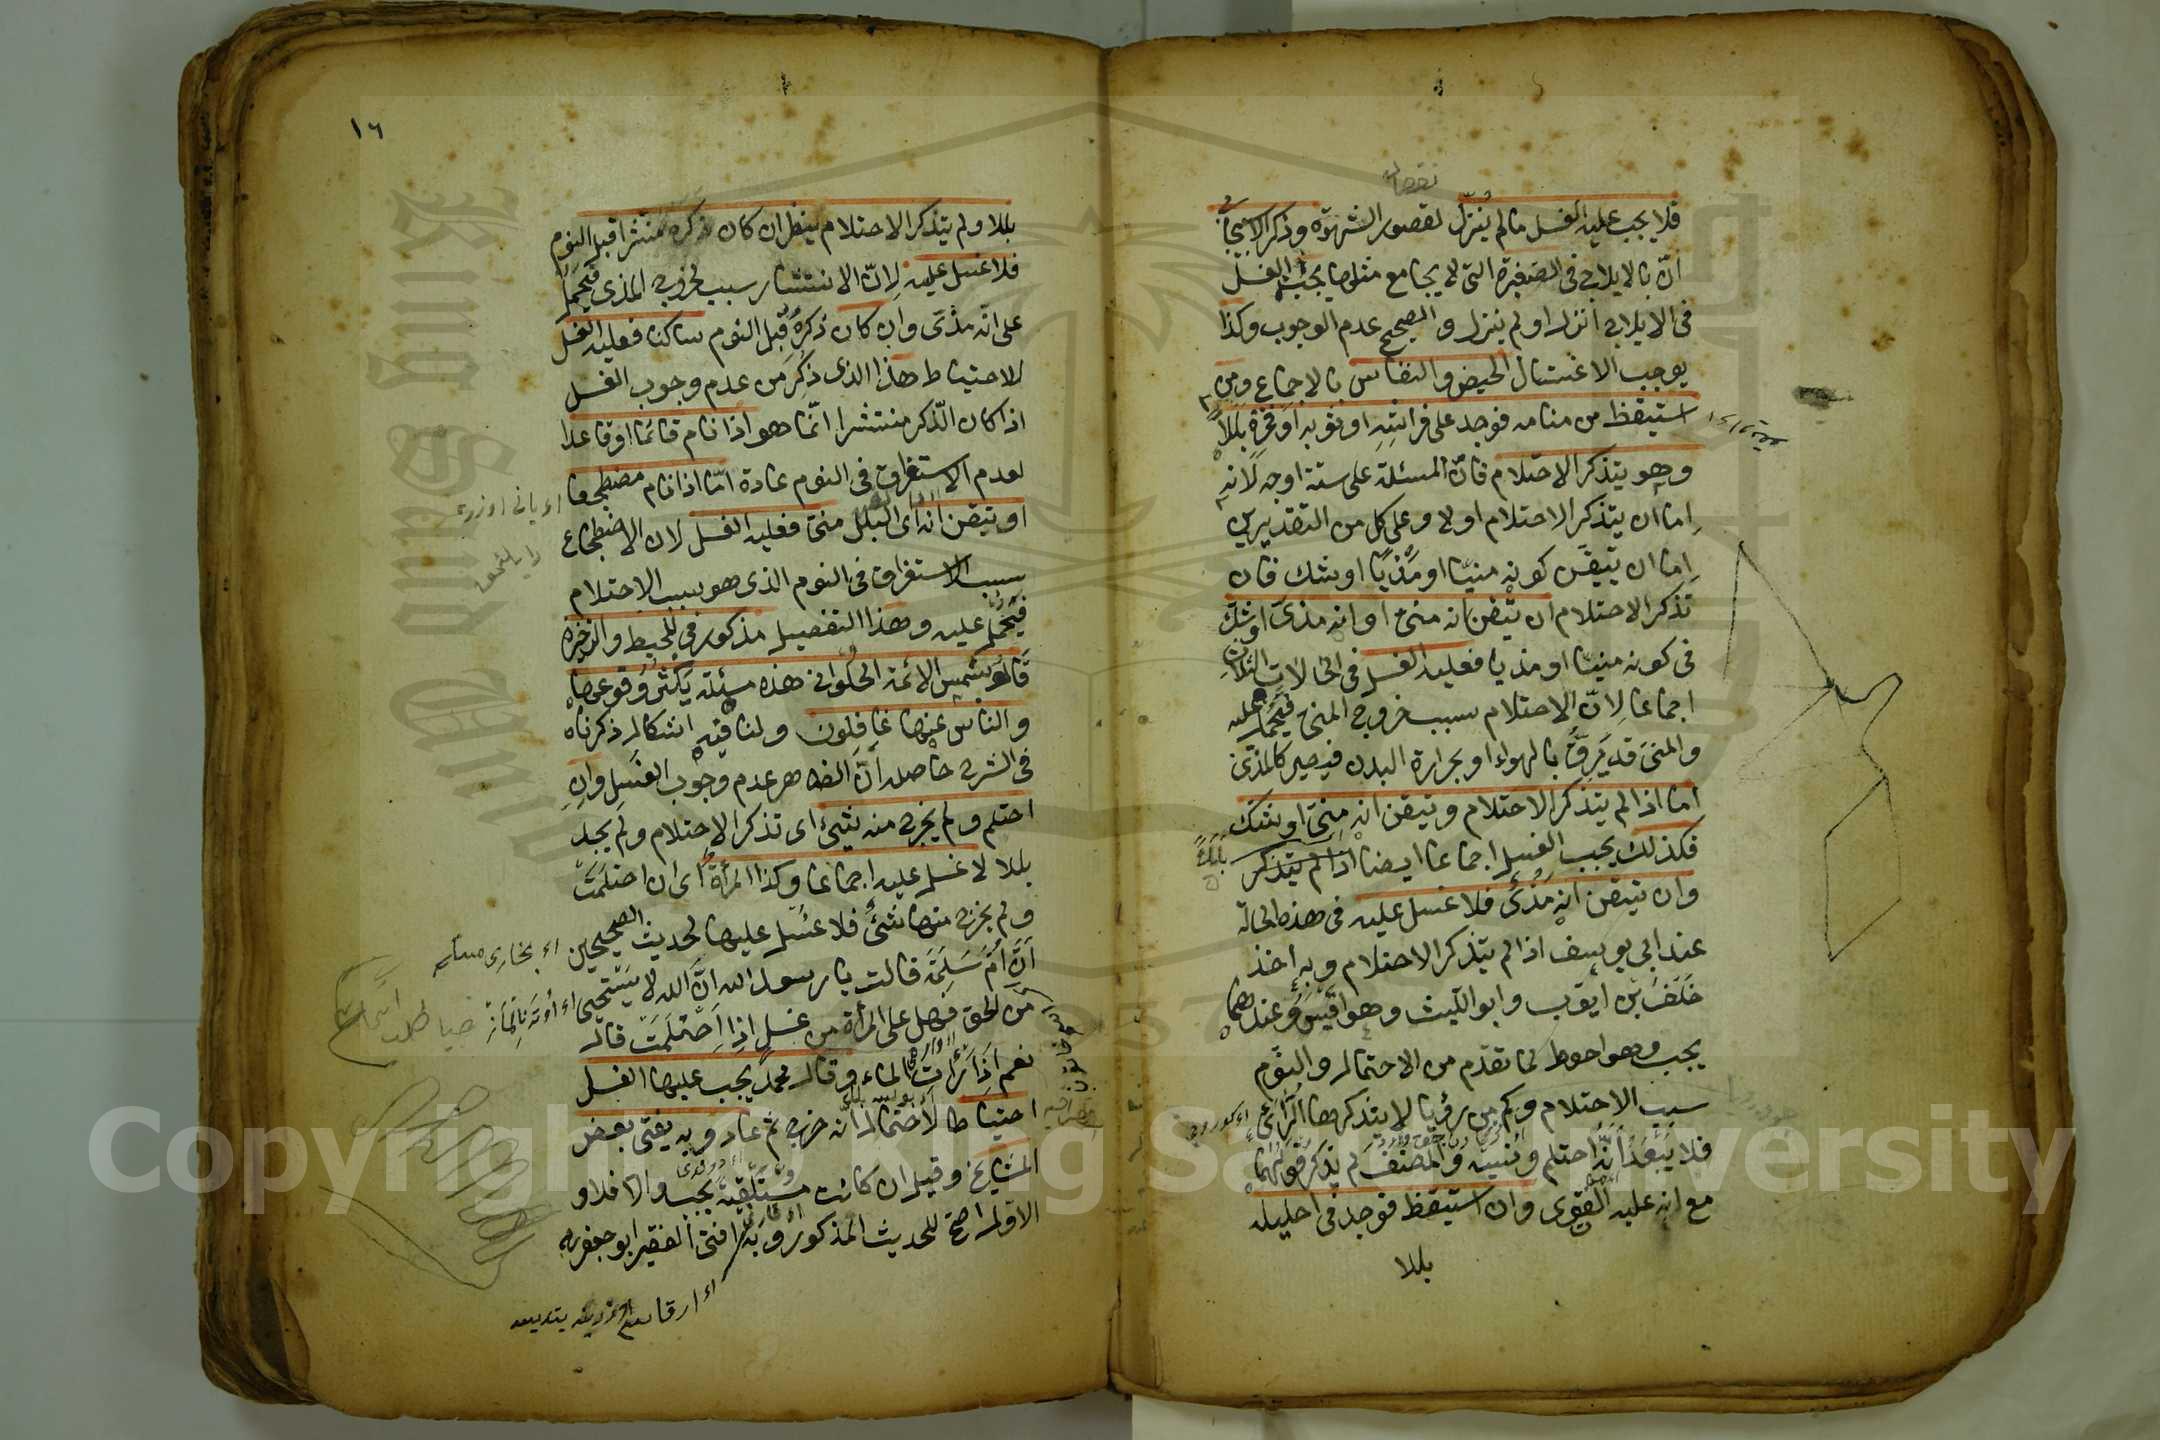 فلا يجب عليه الغسل مالم يُنزل لقصور الشهوة وذكر الاسبيجابي
انّ بالايلاج في الصغيرة التي لا يجامع مثلها يجب الغسل
في الايلاج انزل او لم ينزل والصحيح عدم الوجوب وكذا
يوجب الاغتسال الحيض والنفاس بالاجماع ومن
استيقظ من منامه فوجد على فراشه او ثوبه او فخذه بللاً
وهو يتذكر الاحتلام فانّ المسئلة على ستة اوجه لانه
اما ان يتذكر الاحتلام او لا وعلى كل من التقديرين
اما ان يتيقن كونه منيّا او مذيّا او شك فان
تذكر الاحتلام ان تيقن انه منىّ او انه مذىّ او شكّ
في كونه منيّا او مذيا فعليه الغسل في الحالات الثلاث
اجماعا لانّ الاحتلام سبب خروج المنىّ فيُحمل عليه
والمنىّ قد يَرِقّ بالهواء او بحرارة البدن فيصير كالمذىّ
اما اذا لم يتذكر الاحتلام وتيقن انه منىّ او شك
فكذلك يجب الغسل اجماعا ايضا اذا لم يتذكر
وان تيقن انه مذىّ فلا غسل عليه في هذه الحالة
عند ابي يوسف اذا لم يتذكر الاحتلام وبه اخذ
خلف بن ايوب وابو الليث وهو اقيس وعندهما
يجب وهو احوط لما تقدّم من الاحتمال والنوم
سبب الاحتلام وكم من رؤيا لا يتذكرها الرّائي
فلا يبعد أنّه احتلم ونسيه والمصنف لم يذكر قولهما
مع انه عليه الفتوى وان استيقظ فوجد في احليله
بللا
١٦
بللا ولم يتذكر الاحتلام ينظر ان كان ذكره منتشرا قبل النوم
فلا غسل عليه لانّ الانتشار سبب لخروج المذى فيحمل
على انّه مذىّ وان كان ذكره قبل النوم ساكنا فعليه الغسل
للاحتياط هذا الذى ذُكِر من عدم وجوب الغسل
اذا كان الذّكر منتشرا انّما هو اذا نام قائما او قاعدا
لعدم الاستغراق في النوم عادة امّا اذا نام مضطجعا
او تيقن انه اى البلل منىّ فعليه الغسل لان الاضطجاع
سبب الاستغراق في النوم الذى هو سبب الاحتلام
فيُحمل عليه وهذا التفصيل مذكور في المحيط والذخيرة
قال شمس الائمة الحلواني هذه مسئلة يكثر وقوعها
والناس عنها غافلون ولنا فيه اشكال ذكرناه
في الشرح حاصله انّ الظاهر عدم وجوب الغسل وان
احتلم ولم يخرج منه شيئ اى تذكر الاحتلام ولم يجد
بللا لا غسل عليه اجماعا وكذا المرأة اى ان احتلمت
ولم يخرج منها شئ فلا غسل عليها لحديث الصحيحين
اء بخارى مسلم
أنّ امّ سلمة قالت يا رسول الله انّ الله لا يستحيى
من الحق فهل على المرأة من غسل اذا احتلمت قال
نعم اذا رأت الماء وقال محمد يجب عليها الغسل
احتياطا لاحتمال انّه خرج ثم عاد وبه يفتى بعض
المشايخ وقيل ان كانت مستلقية يجب والا فلا و
الاول اصح للحديث المذكور وبه افتى الفقيه ابو جعفر